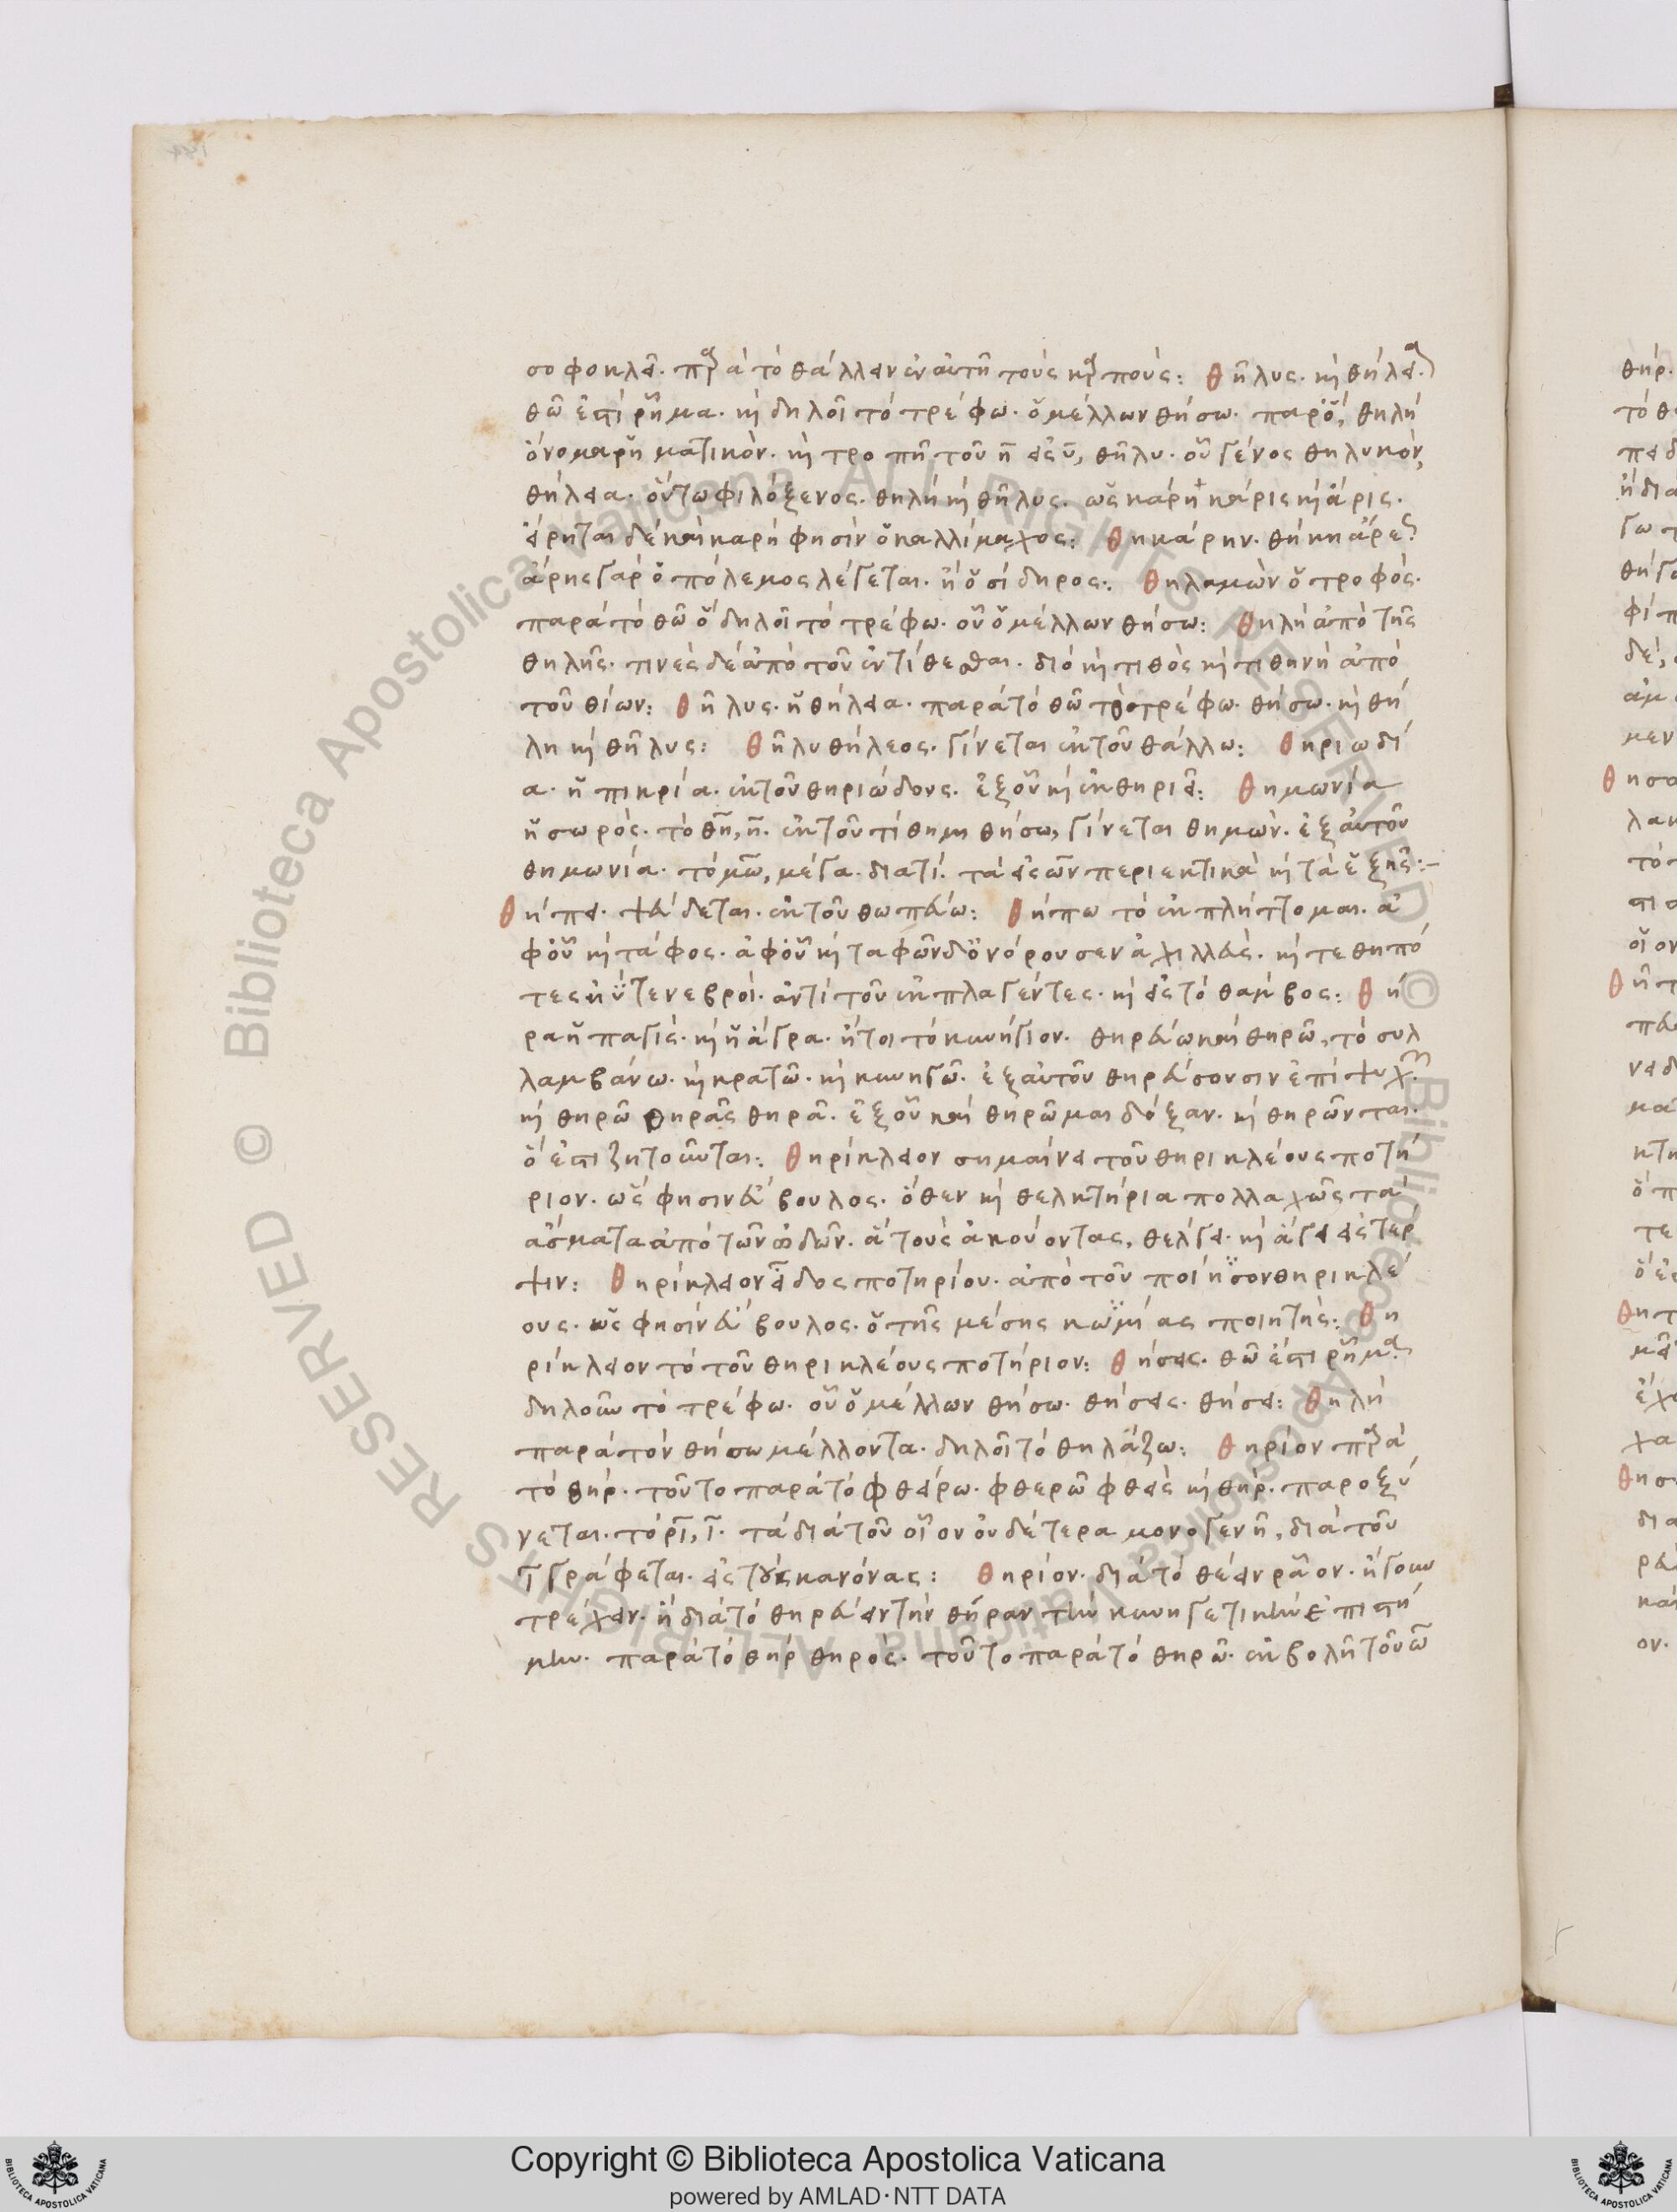 σοφοκλεῖ. παρὰ τὸ θάλλειν ἐν αὐτῆ τοὺς καρποὺς: θῆλυς. καὶ θήλεια
θῶ ἐστὶ ῥῆμα. καὶ δηλοῖ τὸ τρέφω. ὁ μέλλων θήσω. παρ' ὃ, θηλὴ
ὄνομα ῥηματικὸν. καὶ τροπῆ τοῦ η̄ εἰς ῡ, θῆλυ. οὗ γένος θηλυκὸν,
θήλεια. οὕτω φιλόξενος. θηλὴ καὶ θῆλυς. ὡς κάρη κάρις καὶ ἄρις.
εἴρηται δὲ καὶ καρὴ φησὶν ὁ καλλίμαχος: θηκάρην. θήκη ἄρε
ἄρης γὰρ ὁ πόλεμος λέγεται. ἢ ὁ σίδηρος: θηλαμὼν ὁ τροφὸς.
παρὰ τὸ θῶ ὃ δηλοῖ τὸ τρέφω. οὗ ὁ μέλλων θήσω: θηλὴ ἀπὸ τῆς
θηλῆς. τινὲς δὲ ἀπὸ τοῦ ἐντίθεσθαι. διὸ καὶ τιθὸς καὶ τιθηνὴ ἀπὸ
τοῦ θίων: θῆλυς. ἡ θήλεια. παρὰ τὸ θῶ τὸ τρέφω. θήσω. καὶ θή
λη καὶ θῆλυς: θῆλυ θήλεος. γίνεται ἐκ τοῦ θάλλω: θηριωδί
α. ἡ πικρία. ἐκ τοῦ θηριώδους. ἐξ οὗ καὶ ἐκθηριεῖ: θημωνία
ἡ σωρὸς. τὸ θη̄, η̄. ἐκ τοῦ τίθημι θήσω, γίνεται θημὼν. ἐξ αὐτοῦ
θημωνία. τὸ μω̄, μέγα. διατί. τὰ εἰς ων περιεκτικὰ καὶ τὰ ἑξῆς:-
θήπει. ψεύδεται. ἐκ τοῦ θωπεύω: θήπω τὸ ἐκπλήττομαι. ἀ
φ' οὗ καὶ τάφος. ἀφ' οὗ καὶ ταφῶν δ' ἀνόρουσεν ἀχιλλεὺς. καὶ τεθηπό
τες ἠύτε νεβροὶ. ἀντὶ τοῦ ἐκπλαγέντες. καὶ εἰς τὸ θαμβος: θή
ρα ἡ παγὶς. καὶ ἡ ἄγρα. ἤτοι τὸ κυνήγιον. θηρεύω καὶ θηρῶ, τὸ συλ
λαμβάνω. καὶ κρατῶ. καὶ κυνηγῶ. ἐξ αὐτοῦ θηρεύσουσιν ἐπὶ ψυχὴν
καὶ θηρῶ θηρᾶς θηρᾶ. ἐξ οὗ καὶ θηρῶμαι δόξαν. καὶ θηρῶνται.
ὃ ἐπιζητοῦνται: θηρίκλειον σημαίνει τοῦ θηρικλέους ποτή
ριον. ὥς φησιν εὔβουλος. ὅθεν καὶ θελητήρια πολλαχῶς τὰ
ἄσματα ἀπὸ τῶν ὠδῶν. ἃ τοὺς ἀκούοντας, θέλγει. καὶ ἄγει εἰς τέρ
ψιν: θηρίκλειον εἶδος ποτηρίου. ἀπὸ τοῦ ποιήσον θηρικλέ
ους. ὥς φησὶν εὔβουλος. ὁ τῆς μέσης κωμῳίας ποιητὴς: θη
ρίκλειον τὸ τοῦ θηρικλέους ποτήριον: θήσεις. θῶ ἐστὶ ῥῆμα
δηλοῦν τὸ τρέφω. οὗ ὁ μέλλων θήσω. θήσεις. θήσει: θηλὴ
παρὰ τὸν θήσω μέλλοντα. δηλοῖ τὸ θηλάζω: θηρίον παρὰ
τὸ θὴρ. τοῦτο παρὰ τὸ φθείρω. φθερῶ φθεὶς καὶ θὴρ. παροξύ
νεται. τὸ ρῑ, ῑ. τὰ διὰ τοῦ οῖον οὐδέτερα μονογενῆ, διὰ τοῦ
ῑ γράφεται. εἰς τοὺς κανόνας: θηρίον. διὰ τὸ θέειν ῥᾶον. ἤγουν
τρέχειν. ἢ διὰ τὸ θηρεύειν τὴν θῆραν τὴν κυνηγετικὴν ἐπιστή
μην. παρὰ τὸ θὴρ θηρὸς. τοῦτο παρὰ τὸ θηρῶ. ἐκβολῆ τοῦ ω̄